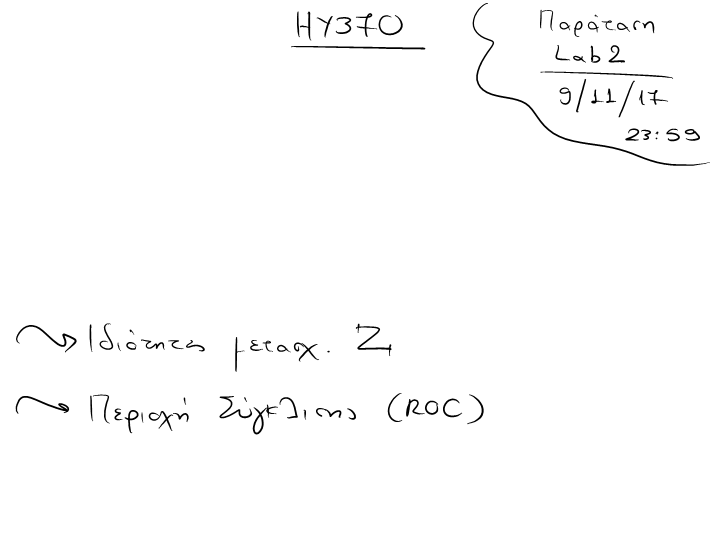 HY370
Παράταση
Lab 2
9/11/17
23:59
Ιδιότητες μετασχ. Z
Περιοχή Σύγκλισης (ROC)